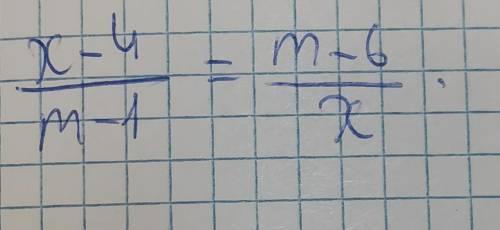 x-4/m-1 = m-6/x .